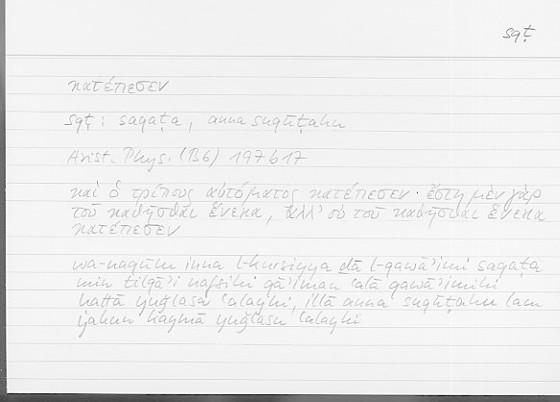 sqṭ
κατέπεσεν
sqṭ: saqaṭa, anna suqūṭahu
Arist. Phys. (B6) 197b17
καὶ ὁ τρίπους αὐτόματος κατέπεσεν· ἔστη μὲν γὰρ
τοῦ καθῆσθαι ἕνεκα, ἀλλ' οὐ τοῦ καθῆσθαι ἕνεκα
κατέπεσεν
wa-naqūlu inna l-kursiyya ḏā l-qawāʾimi saqaṭa
min tilqāʾi nafsihi qāʾiman ʿalā qawāʾimihi
ḥattā yuǧlasu ʿalayhi, illā anna suqūṭahu lam
yakun kaymā yuǧlasu ʿalayhi